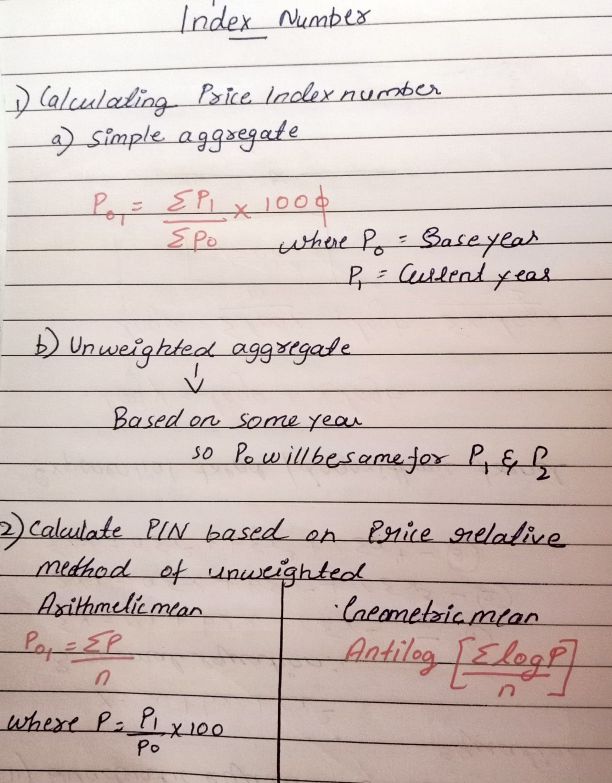 Index Number
1) Calculating Price Index number
a) Simple aggregate
P₀₁ = ΣP₁/ΣP₀ × 100
where P₀ = Base year
P₁ = Current year
b) Unweighted aggregate
↓
Based on some year
so P₀ will be same for P₁ & P₂
2) Calculate PIN based on Price relative
method of unweighted
Arithmetic mean
P₀₁ = ΣP/n
where P = P₁/P₀ × 100
Geometric mean
Antilog [Σ log P/n]